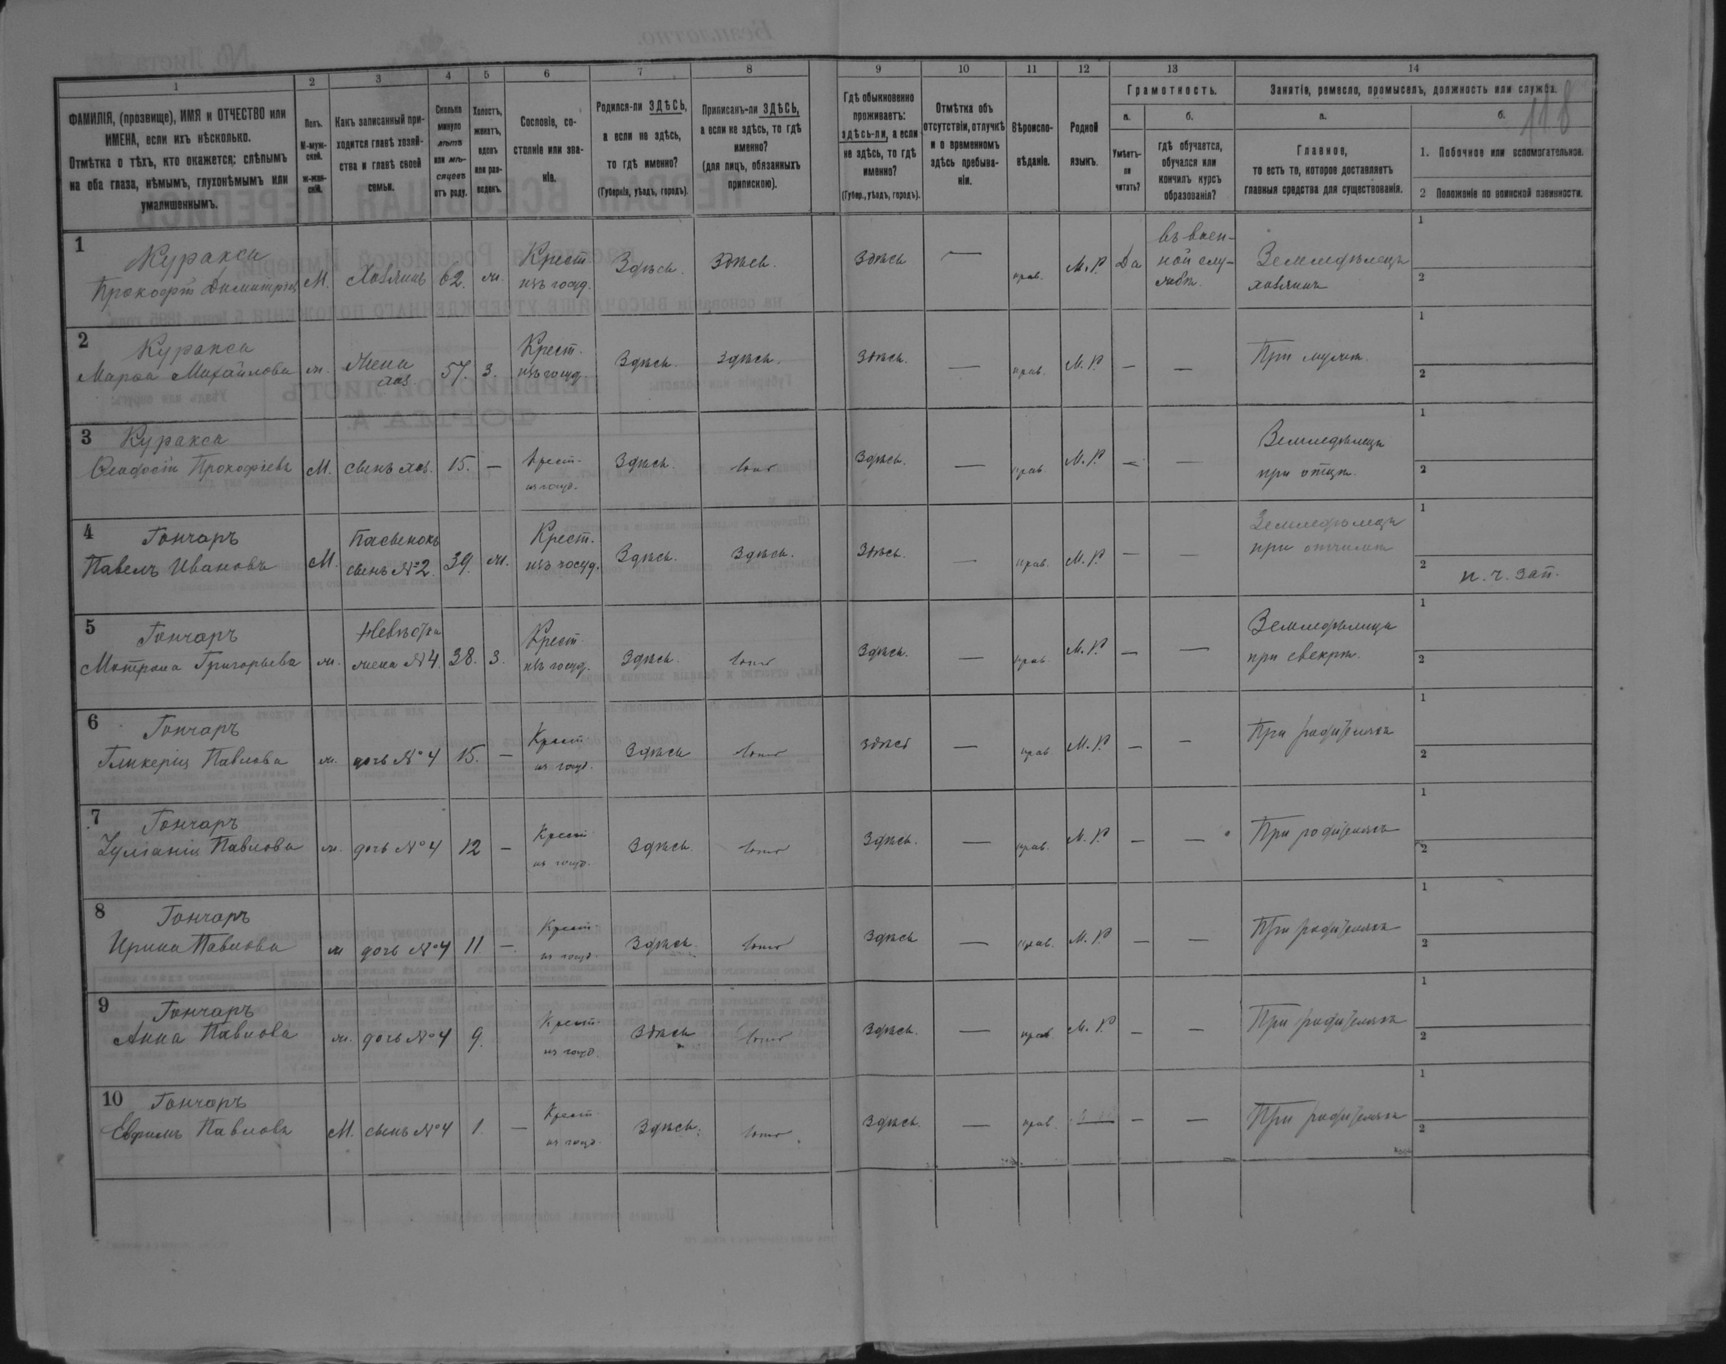 1 2 3 4 5 6 7 8 9 10 11 12 13 14
ФАМИЛІЯ, (прозвище), ИМЯ и ОТЧЕСТВО или
ИМЕНА, если ихъ нѣсколько.
Отмѣтка о тѣхъ, кто окажется: слѣпымъ
на оба глаза, нѣмымъ, глухонѣмымъ или
умалишеннымъ.
Полъ.
М-муж-
ской.
ж-жен-
скій.
Какъ записанный при-
ходится главѣ хозяй-
ства и главѣ своей
семьи.
Сколько
минуло
лѣтъ
или мѣ-
сяцевъ
отъ роду.
Холостъ,
женатъ,
вдовъ
или раз-
веденъ.
Сословіе, со-
стояніе или зва-
ніе.
Родился-ли ЗДѢСЬ,
а если не здѣсь,
то гдѣ именно?
(Губернія, уѣздъ, городъ).
Приписанъ-ли ЗДѢСЬ,
а если не здѣсь, то гдѣ
именно?
(для лицъ, обязанныхъ
припискою).
Гдѣ обыкновенно
проживаетъ:
здѣсь-ли, а если
не здѣсь, то гдѣ
именно?
(Губер., уѣздъ, городъ).
Отмѣтка объ
отсутствіи, отлучкѣ
и о временномъ
здѣсь пребыва-
ніи.
Вѣроиспо-
вѣданіе.
Родной
языкъ.
Грамотность.
а.
Умѣетъ-
ли
читать?
б.
гдѣ обучается,
обучался или
кончилъ курсъ
образованія?
Занятіе, ремесло, промыселъ, должность или служба.
а.
Главное,
то есть то, которое доставляетъ
главныя средства для существованія.
б.
118
1. Побочное или вспомогательное.
2 Положеніе по воинской повинности.
1 Куракса
Прокофій Димитріевъ М. Хозяинъ 62. ж. Крест. изъ госуд. Здѣсь. Здѣсь. Здѣсь — прав. М. Р. Да въ воен-
ной слу-
жбѣ. Земледѣлецъ
хозяинъ 1 2
2 Куракса
Марѳа Михайлова ж. Жена хоз. 57. з. Крест. изъ госуд. Здѣсь. Здѣсь. Здѣсь. — прав. М. Р. — — При мужѣ. 1 2
3 Куракса
Ѳеодосій Прокофіевъ М. сынъ хоз. 15. — Крест. из госуд. Здѣсь. Здѣсь. — прав. М. Р. — — Земледѣлецъ
при отцѣ. 1 2
4 Гончаръ
Павелъ Ивановъ М. Пасынокъ
сынъ №2. 39. ж. Крест. изъ госуд. Здѣсь. Здѣсь. Здѣсь. — прав. М. Р. — — Земледѣлецъ
при отчимѣ 1 2 н. ч. зап.
5 Гончаръ
Мотрона Григорьева ж. Невѣстка
жена №4. 38. з. Крест. изъ госуд. Здѣсь. Здѣсь. — прав. М. Р. — — Земледѣлица
при свекрѣ. 1 2
6 Гончаръ
Гликерія Павлова ж. дочь №4 15. — Крест. из госуд. Здѣсь Здѣсь — прав М. Р. — — При родителяхъ 1 2
7 Гончаръ
Павлова ж. дочь №4 12 — Крест. из госуд. Здѣсь. Здѣсь. — прав. М. Р. — — При родителяхъ 1 2
8 Гончаръ
Ирина Павлова ж дочь №4 11 — Крест. из госуд. Здѣсь. Здѣсь — прав. М. Р. — — При родителяхъ 1 2
9 Гончаръ
Анна Павлова ж. дочь №4 9. Крест. из госуд. Здѣсь Здѣсь. — прав. М. Р — — При родителяхъ 1 2
10 Гончаръ
Евфимъ Павловъ М. сынъ №4 1. — Крест. из госуд. Здѣсь. Здѣсь. — прав. — — При родителяхъ 1 2